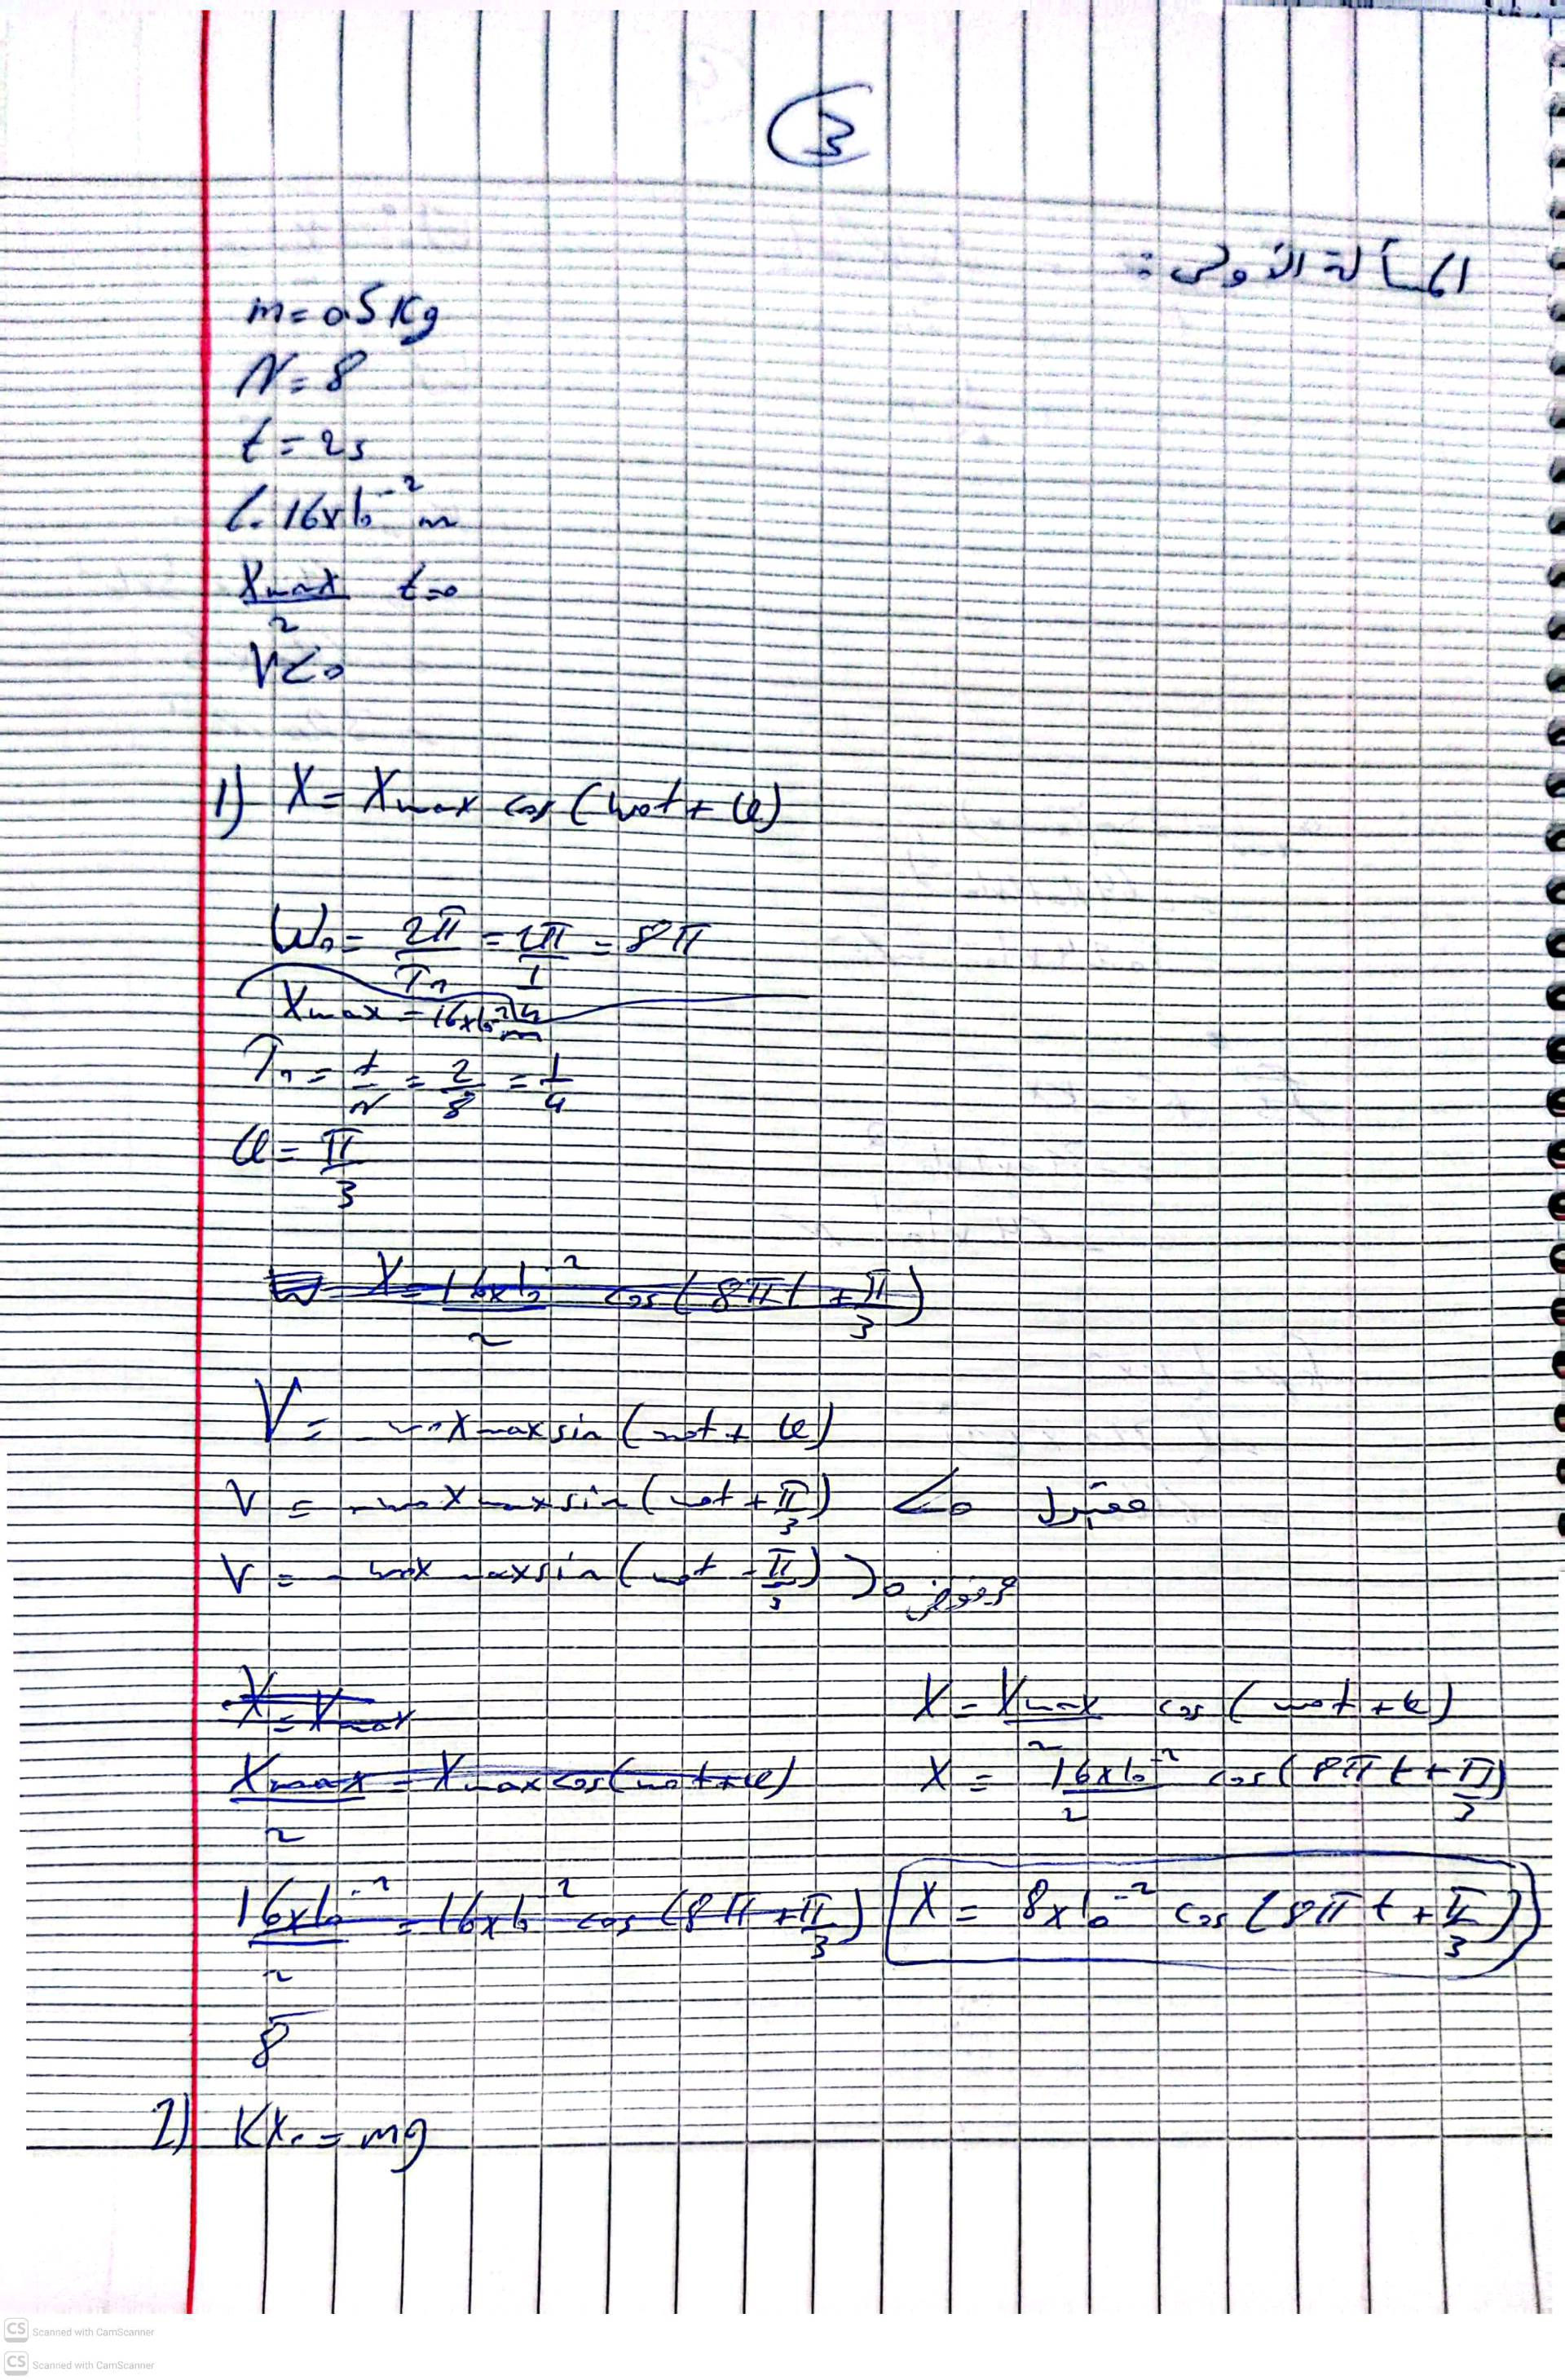 3
المسألة الأولى :
m = 0.5 Kg
N = 8
t = 2s
L. 16x10^-2 m
Xmax/2 t=0
V<0
1) X = Xmax cos (w0t + φ)
W0 = 2π/T0 = 2π/(1/4) = 8π
Xmax = 16x10^-2 m
T0 = t/N = 2/8 = 1/4
φ = π/3
X = 16x10^-2/2 cos (8πt + π/3)
V = -w0Xmax sin (w0t + φ)
V = -w0Xmax sin (w0t + π/3) <0 مقبول
V = -w0Xmax sin (w0t - π/3) >0 مرفوض
X = Xmax
Xmax/2 = Xmax cos (w0t + φ)
16x10^-2/2 = 16x10^-2 cos (8π + π/3)
8
X = Xmax/2 cos (w0t + φ)
X = 16x10^-2/2 cos (8πt + π/3)
X = 8x10^-2 cos (8πt + π/3)
2) KX0 = mg
CS Scanned with CamScanner
CS Scanned with CamScanner